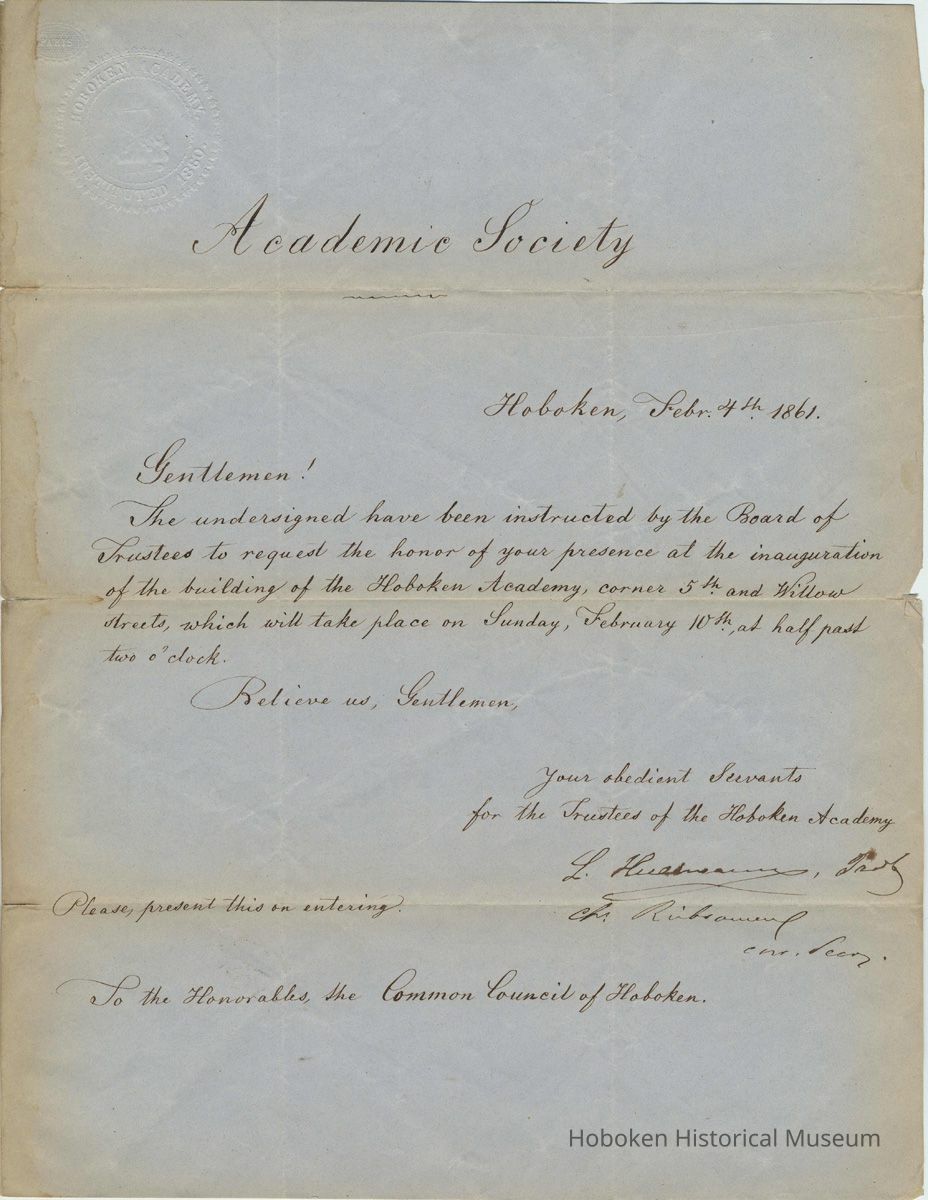 PARIS
HOBOKEN ACADEMY.
INSTITUTED 1860.
Academic Society
Hoboken, Febr. 4th. 1861.
Gentlemen!
The undersigned have been instructed by the Board of
Trustees to request the honor of your presence at the inauguration
of the building of the Hoboken Academy, corner 5th and Willow
streets, which will take place on Sunday, February 10th, at half past
two o'clock.
Believe us, Gentlemen,
Your obedient Servants
for the Trustees of the Hoboken Academy
L.
Please, present this on entering.
corr. Secy.
To the Honorables, the Common Council of Hoboken.
Hoboken Historical Museum